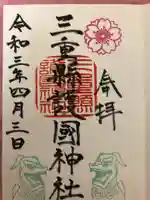 奉拝
三重縣護國神社
令和三年四月三日